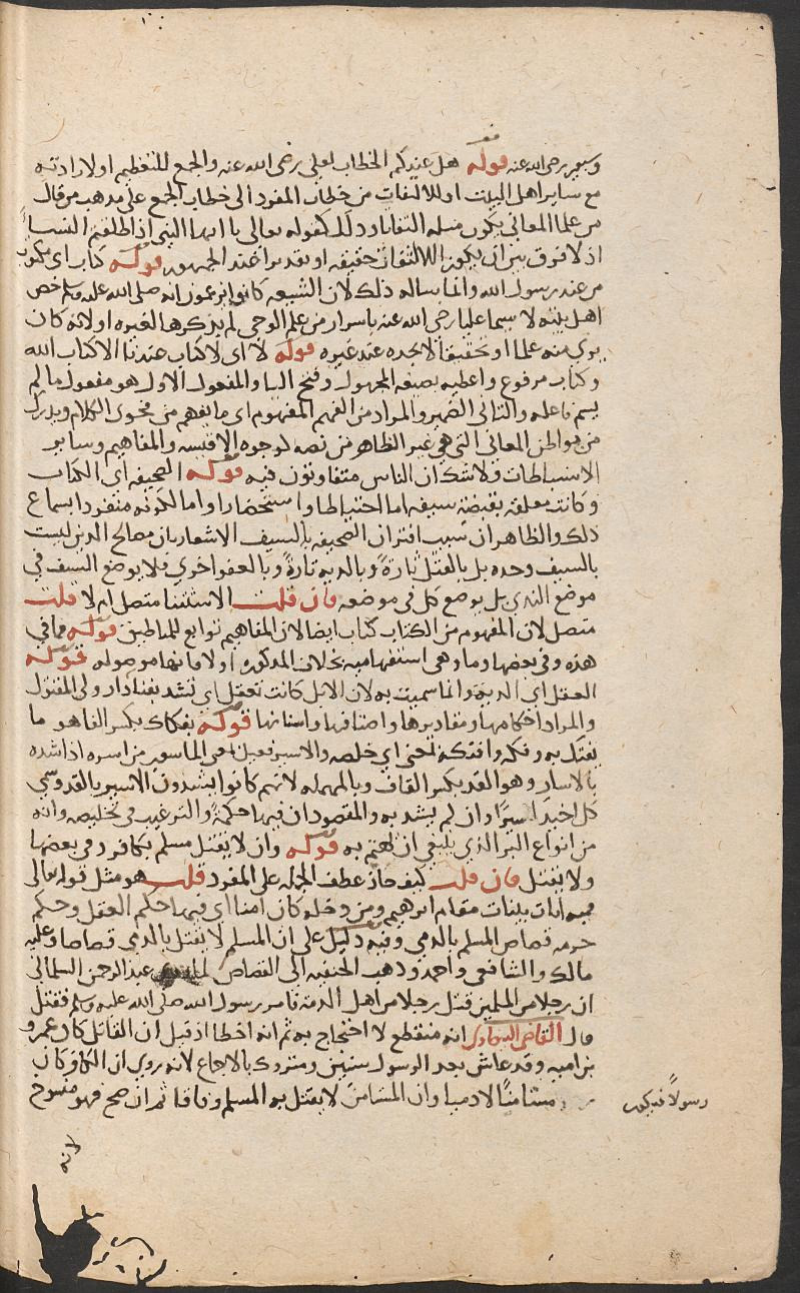 وسبعين رضي الله عنه قوله هل عندكم الخطاب لعلي رضي الله عنه والجمع للتعظيم او لارادته
مع ساير اهل البيت او للالتفات من خطاب المفرد الى خطاب الجمع على مذهب من قال
من علما المعاني يكون مثله التفاتا وذلك كقوله تعالى يا ايها النبي اذا طلقتم النسا
اذ لا فرق بين ان يكون الالتفات حقيقة او تقديرا عند الجمهور قوله كتاب اي مكتوب
من عند رسول الله وانما ساله ذلك لان الشيعه كانوا يزعمون انه صلى الله عليه وسلم خص
اهل بيته لا سيما عليا رضي الله عنه باسرار من علم الوحي لم يذكرها لغيره او لانه كان
يرى منه علما وتحقيقا لا يجده عند غيره قوله لا اي لا كتاب عندنا الا كتاب الله
وكتاب مرفوع واعطيه بصيغه المجهول وفتح اليا والمفعول الاول هو مفعول ما لم
يسم فاعله والثاني الضمير والمراد من الفهم المفهوم اي ما يفهم من فحوى الكلام ويدرك
من بواطن المعاني التي هي غير الظاهر من نصه لوجوه الاقيسه والمفاهيم وساير
الاستنباطات ولا شك ان الناس متفاوتون فيه قوله الصحيفه اي الكتاب
وكانت معلقه بقبضة سيفه اما احتياطا واستحضارا واما لكونه منفردا بسماع
ذلك والظاهر ان سبب اقتران الصحيفه بالسيف الاشعار بان مصالح الدين ليست
بالسيف وحده بل بالقتل تارة وبالديه تارة وبالعفو اخرى فلا يوضع السيف في
موضع الندى بل يوضع كل في موضعه فان قلت الاستثنا متصل ام لا قلت
متصل لان المفهوم من الكتاب كتاب ايضا لان المفاهيم توابع للمناطيق قوله فما في
هذه وفي بعضها وما وهي استفهاميه بخلان المذكوره اولا فانها موصوله قوله
العقل اي الدية وانما سميت به لان الابل كانت تعقل اي تشد بفنا دار ولي المقتول
والمراد احكامها ومقاديرها واصنافها واسنانها قوله بفكاك بكسر الفا هو ما
يفتك به وفكه وافتكه بمعنى اي خلصه والاسير فعيل بمعنى الماسور من اسره اذا شده
بالاسار وهو القد بكسر القاف وبالمهمله لانهم كانوا يشدون الاسير بالقد وسمي
كل اخيذ اسيرا وان لم يشد به والمقصود ان فيها حكمه والترغيب في تخليصه وانه
من انواع البر الذي ينبغي ان يهتم به قوله وان لا يقتل مسلم بكافر وفي بعضها
ولا يقتل فان قلت كيف جاز عطف الجمله على المفرد قلت هو مثل قوله تعالى
فيه ايات بينات مقام ابرهيم ومن دخله كان امنا اي فيها حكم العقل وحكم
حرمه قصاص المسلم بالذمي وفيه دليل على ان المسلم لا يقتل بالذمي قصاصا وعليه
مالك والشافعي واحمد وذهب الحنفيه الى القصاص لما روى عبد الرحمن السلماني
ان رجلا من المسلمين قتل رجلا من اهل الذمة فامر رسول الله صلى الله عليه وسلم فقتل
قال القاضي البيضاوي انه منقطع لا احتجاج به ثم انه اخطا اذ قيل ان القاتل كان عمرو
بن اميه وقد عاش بعد الرسول سنين ومتروك بالاجماع لانه روي ان الكافر كان
رسولا فيكون مستامنا لا ذميا وان المستامن لا يقتل به المسلم وفاقا ثم ان صح فهو منسوخ
لانه